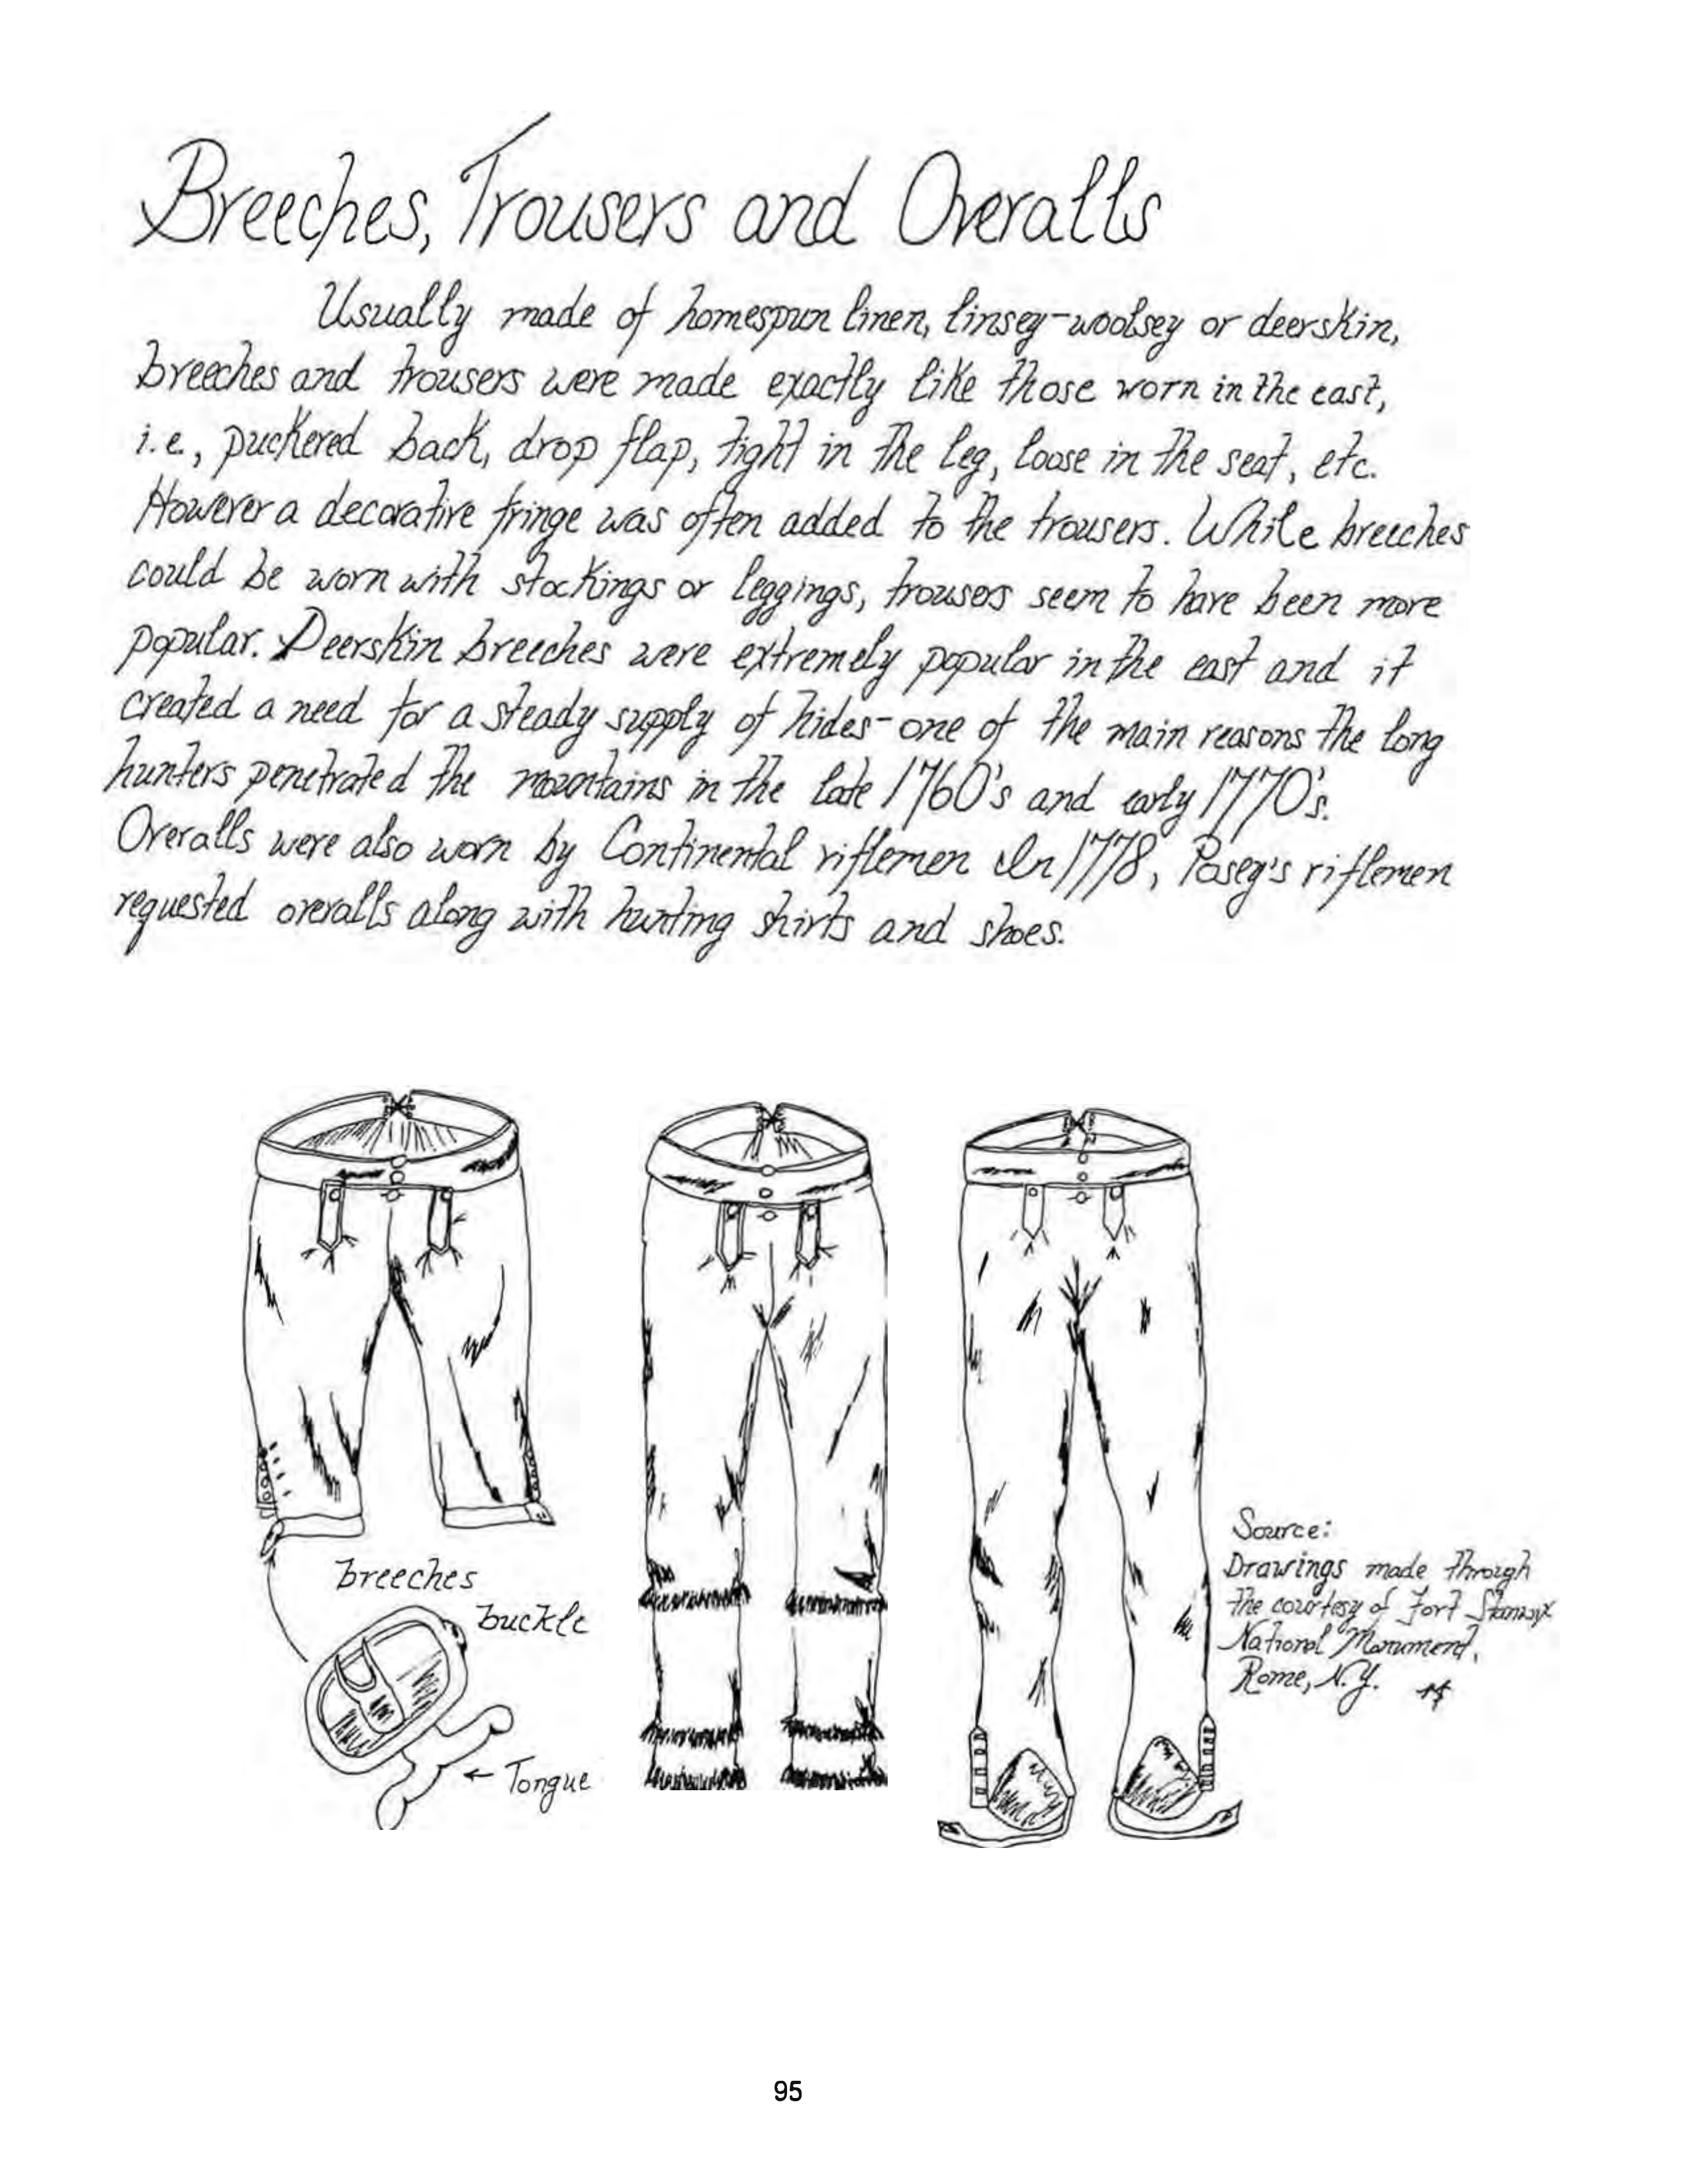 Breeches, Trousers and Overalls
Usually made of homespun linen, linsey-woolsey or deerskin,
breeches and trousers were made exactly like those worn in the east,
i.e., puckered back, drop flap, tight in the leg, loose in the seat, etc.
However a decorative fringe was often added to the trousers. While breeches
could be worn with stockings or leggings, trousers seem to have been more
popular. Deerskin breeches were extremely popular in the east and it
created a need for a steady supply of hides-one of the main reasons the long
hunters penetrated the mountains in the late 1760's and early 1770's.
Overalls were also worn by Continental riflemen In 1778, Posey's riflemen
requested overalls along with hunting shirts and shoes.
breeches
buckle
← Tongue
Source:
Drawings made through
the courtesy of Fort Stanwix
National Monument,
Rome, N.Y.
95